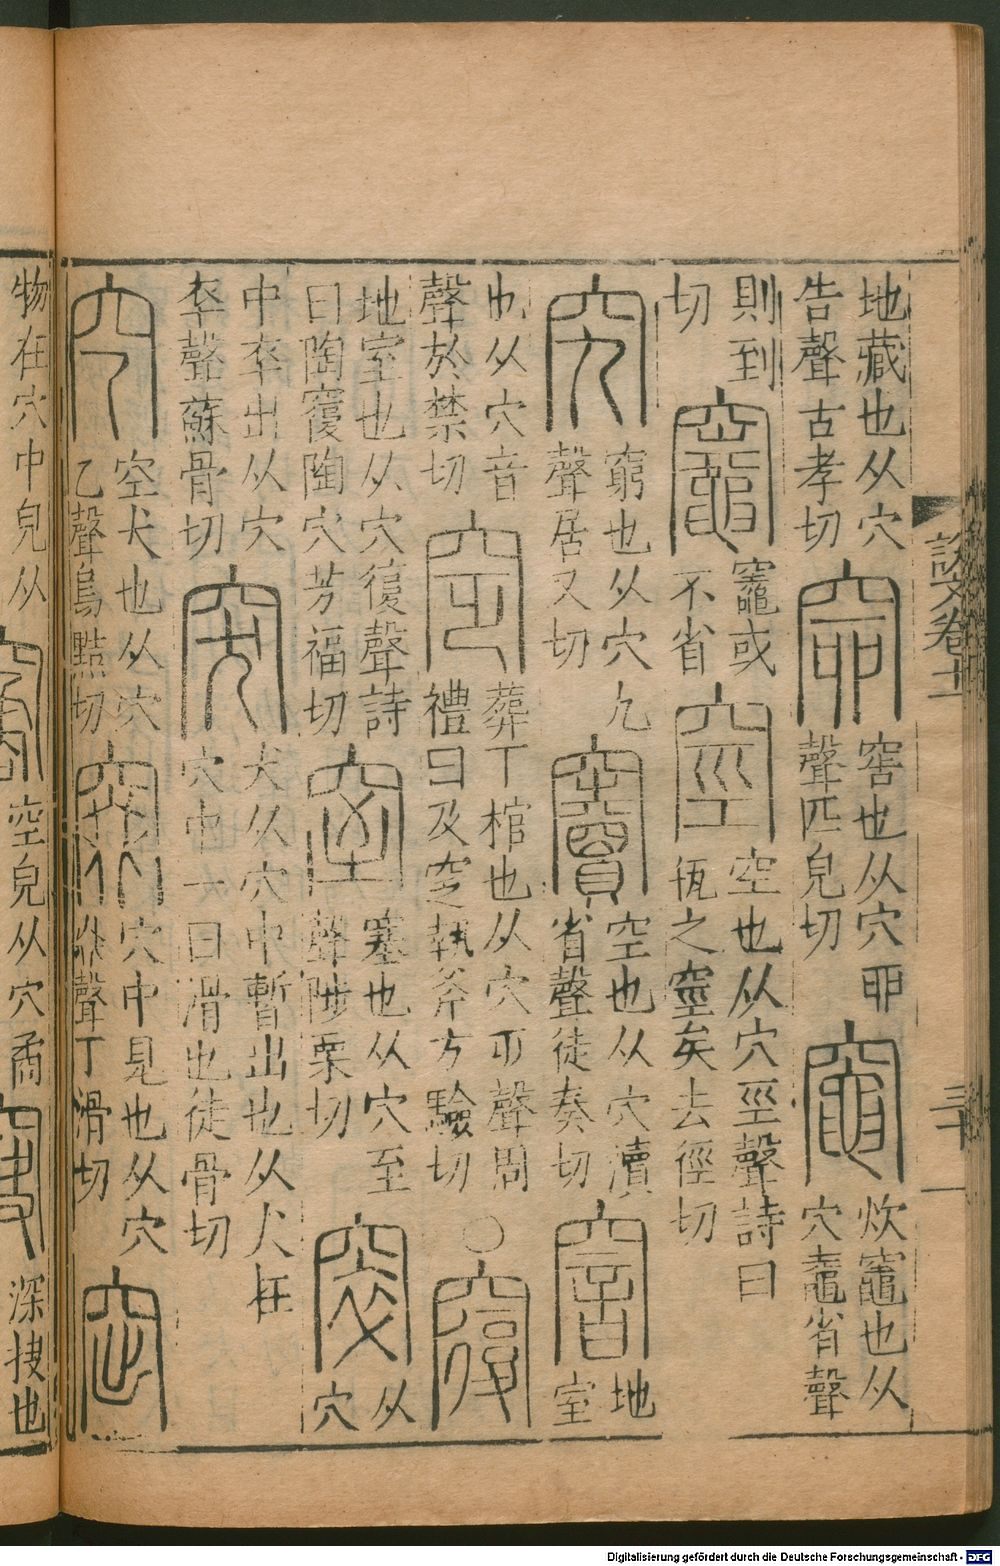 地藏也从穴
告聲古孝切
窌
窖也从穴丣
聲匹皃切
竈
炊竈也从
穴鼀省聲
則到
切
竈
竈或
不省
空也从穴巠聲詩曰
瓶之矣去徑切
究
窮也从穴九
聲居又切
竇
空也从穴瀆
省聲徒奏切
窨
地
室
也从穴音
聲於禁切
窆
葬下棺也从穴乏聲周
禮曰及窆執斧方驗切
○
地室也从穴復聲詩
曰陶陶穴芳福切
窒
塞也从穴至
聲陟栗切
窣
从
穴
中卒出从穴
卒聲蘇骨切
突
犬从穴中暫出也从犬在
穴中一曰滑也徒骨切
穵
空犬也从穴
乙聲烏黠切
窡
穴中見也从穴
叕聲丁滑切
窋
物在穴中皃从
空皃从穴矞
深抉也
說文卷十一
三十
Digitalisierung gefördert durch die Deutsche Forschungsgemeinschaft - DFG